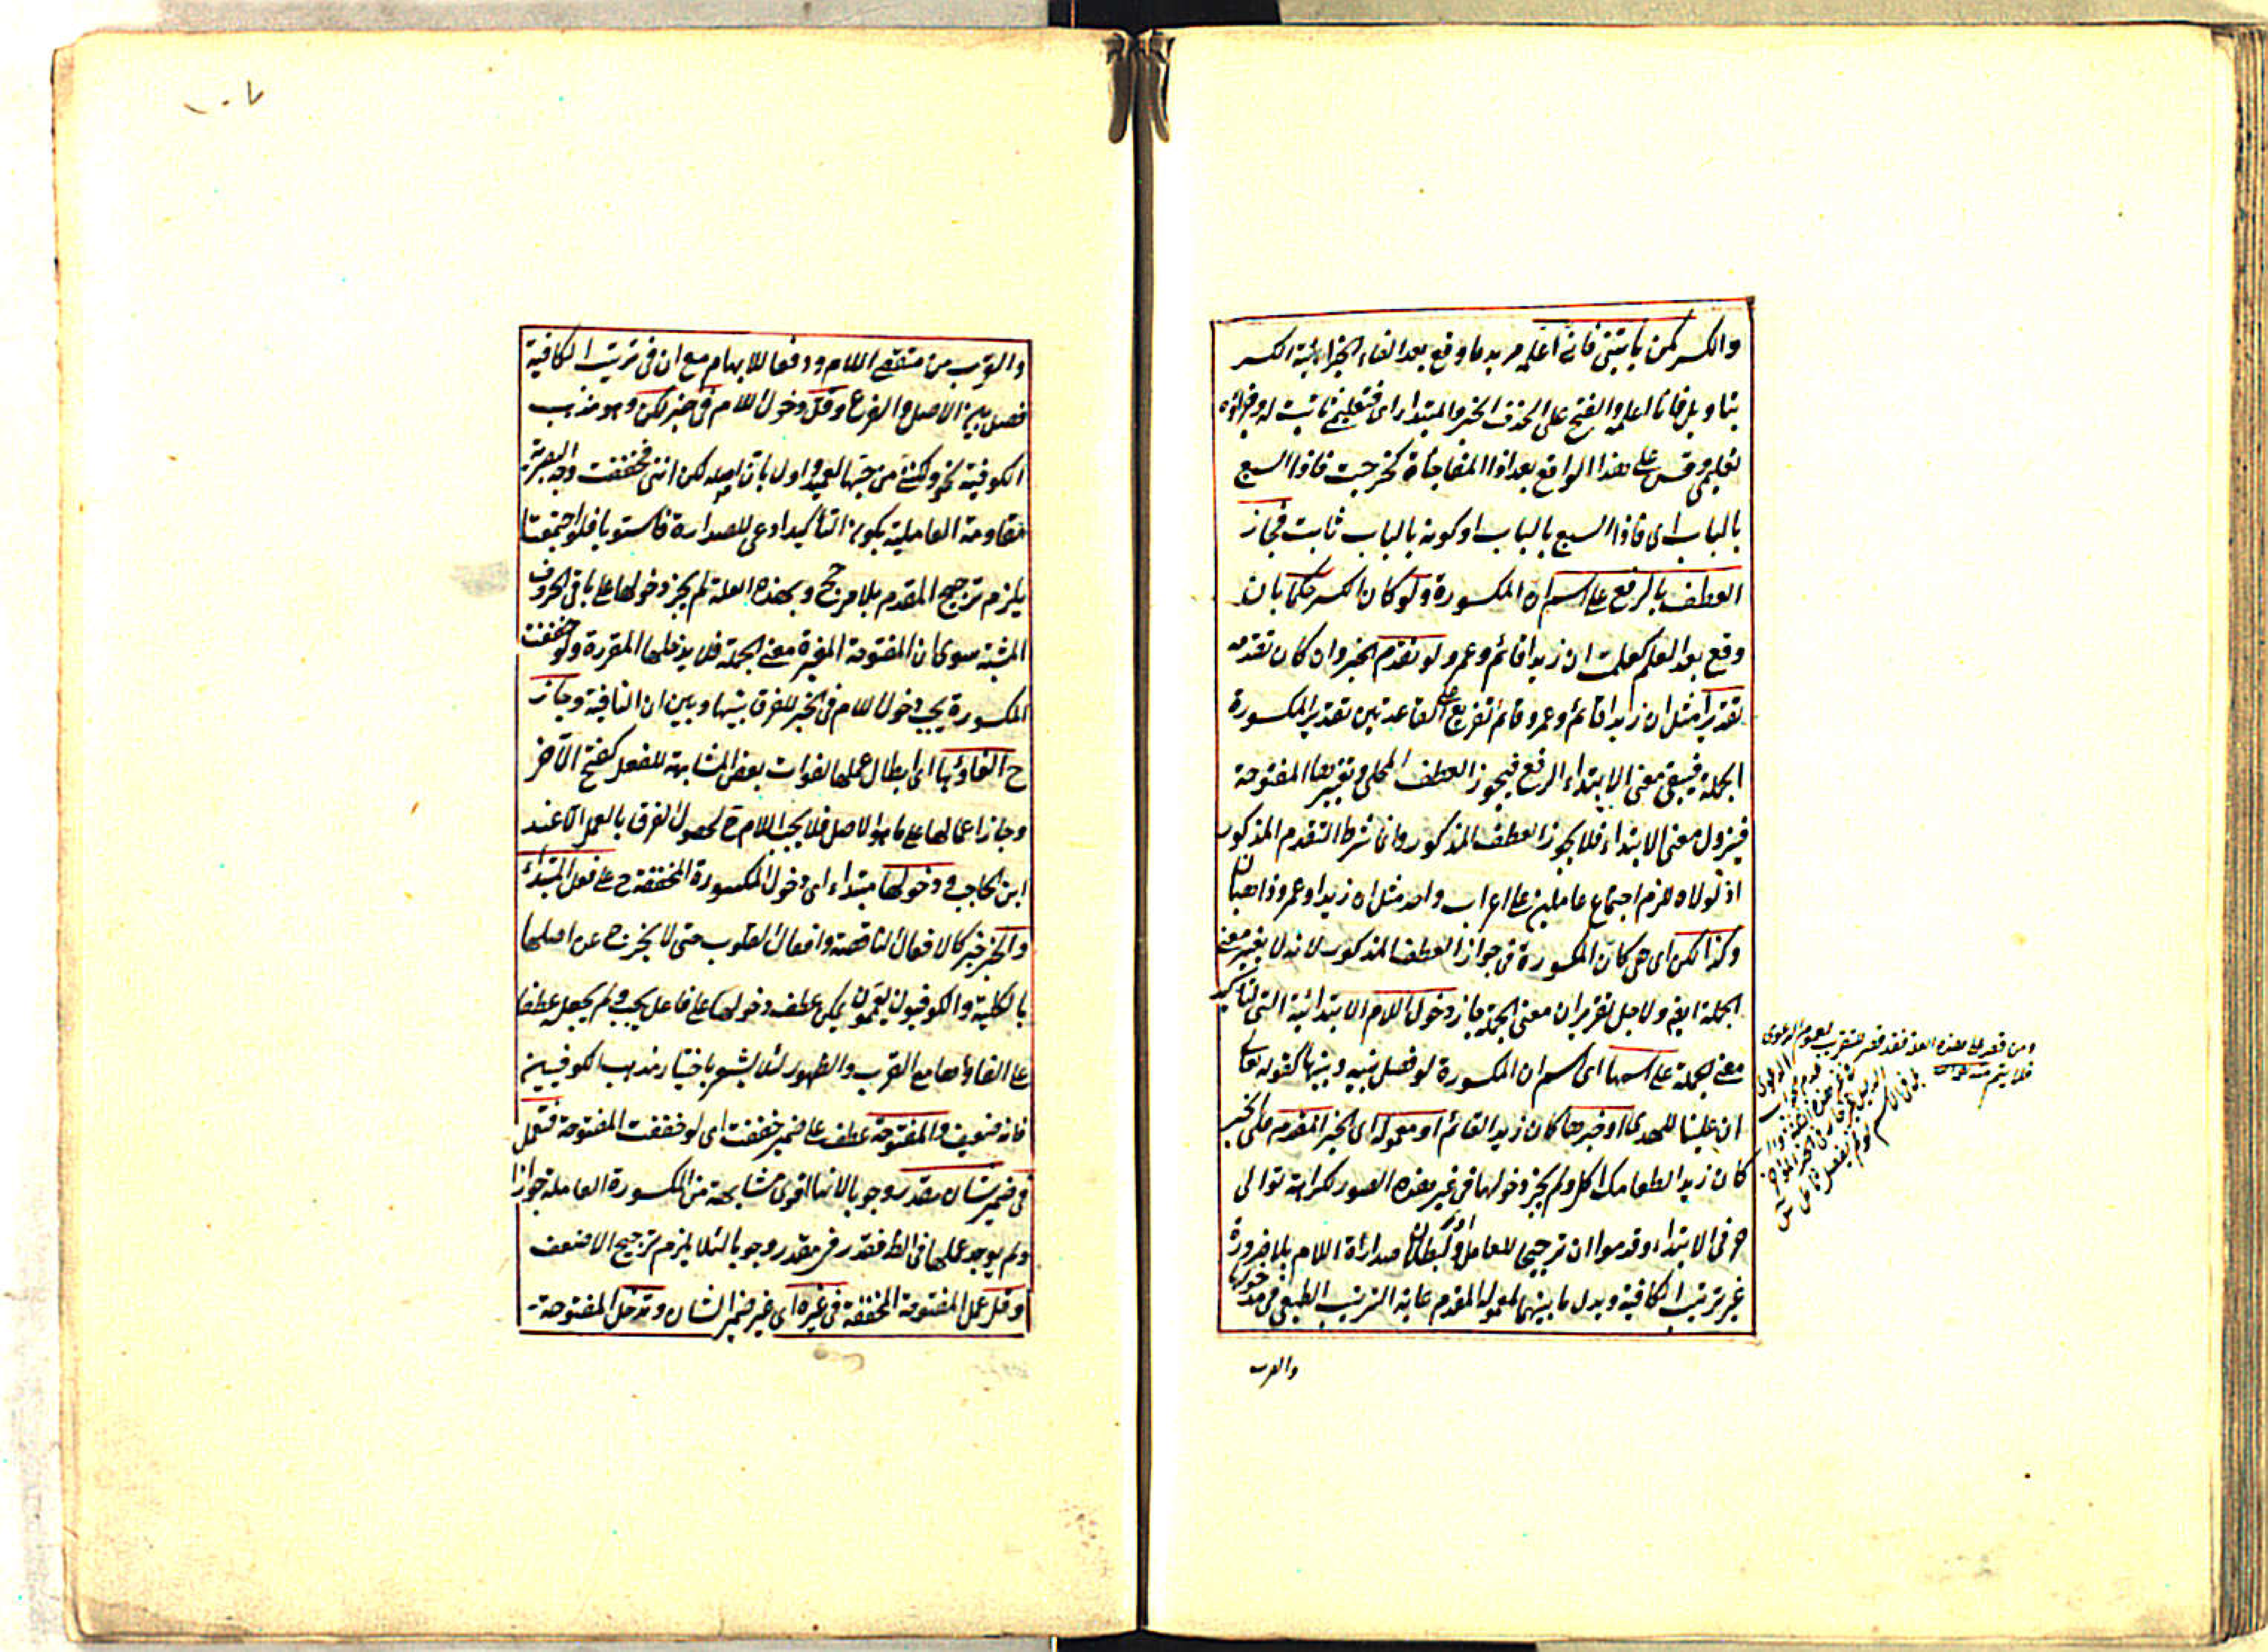 والكسر كمن يأتيني فانى اعلمه مريد ما وقع بعد الفاء الجزائية الكسر
بتاويل فانا اعلمه والفتح على الحذف الخبر والمبتداء اى فتعليمى ثابت له وفجزاؤه
تعليمى وقس على هذا الواقع بعد اذا المفاجأة كخرجت فاذا السبع
بالباب اى فاذا السبع بالباب او كونه بالباب ثابت فجاز
العطف بالرفع على اسم ان المكسورة ولو كان الكسر حكما بان
وقع بعد العلم كعلمت ان زيدا قائم وعمرو لو تقدم الخبر وان كان تقدمه
تقديرا مثل ان زيدا قائم وعمرو قائم تفريع على القاعدتين تقدير المكسورة
الجملة فيبقى معنى الابتداء الرفع فيجوز العطف المحلى وتغيير المفتوحة
فيزول معنى الابتداء فلا يجوز العطف المذكور وانما شرط التقدم المذكور
اذ لولاه للزم اجتماع عاملين على اعراب واحد مثل ان زيدا وعمرو ذاهبان
وكذا لكن اى هى كان المكسورة فى جواز العطف المذكور لانه لا يغير معنى
الجملة ايضا ولاجل تقرير ان معنى الجملة جاز دخول اللام الابتدائية التى لتأكيد
معنى الجملة على اسمها اى اسم ان المكسورة لو فصل بينه وبينها كقوله تعالى
ان علينا للهدى او خبرها كان زيدا لقائم او معموله اى الخبر المقدم على الخبر
كان زيدا لطعامك اكل ولم يجز دخولها فى غير هذه الصور لكراهة توالى
حرفى الابتداء وقدموا ان ترجيحا للعامل ولبطلان صدارة اللام بلا ضرورة
غير ترتيب الكافية وبدل ما بينهما لمعموله المقدم رعاية الترتيب الطبيعى فى مدخولها
والقرب
ومن قصر على هذه
فلا يتم
والقرب من مقتضى اللام ودفعا للابهام مع ان فى ترتيب الكافية
فصل بين الاصل والفرع وقل دخول اللام فى خبر لكن وهو مذهب
الكوفية نحو ولكننى من حبها لعميد واول بان اصله لكن اننى فخففت وجه البصرية
مقاومة العاملية بكونه التأكيد ادعى للصدارة فاستويا فلو اجتمعتا
يلزم ترجيح المقدم بلا مرجح وبهذه العلة لم يجز دخولها على باقى الحروف
المشبهة سوى ان المفتوحة المغيرة معنى الجملة فلا يدخلها المقررة ولو خففت
المكسورة يجب دخول اللام فى الخبر للفرق بينها وبين ان النافية وجاز
ح الغاؤها اى ابطال عملها لفوات بعض المشابهة للفعل كفتح الآخر
وجاز اعمالها على ما هو الاصل فلا يجب اللام ح لحصول الفرق بالعمل الا عند
ابن الحاجب ودخولها مبتداء اى دخول المكسورة المخففة ح على فعل المبتداء
والخبر خبر كالافعال الناقصة وافعال القلوب حتى لا يخرج عن اصلها
بالكلية والكوفيون يعممون يمكن عطف دخولها على فاعل يجب ولم يجعل عطفا
على الغاؤها مع القرب والظهور لئلا يشعر باختيار مذهب الكوفيين
فانه ضعيف والمفتوحة عطف على ضمير خففت اى لو خففت المفتوحة فتعمل
فى ضمير شان مقدر وجوبا لانها اقوى مشابهة من المكسورة العاملة جوازا
ولم يوجد عملها فى الظ فقدر فى مقدر وجوبا لئلا يلزم ترجيح الاضعف
وقل عمل المفتوحة المخففة فى غيره اى غير ضمير الشان وتدخل المفتوحة